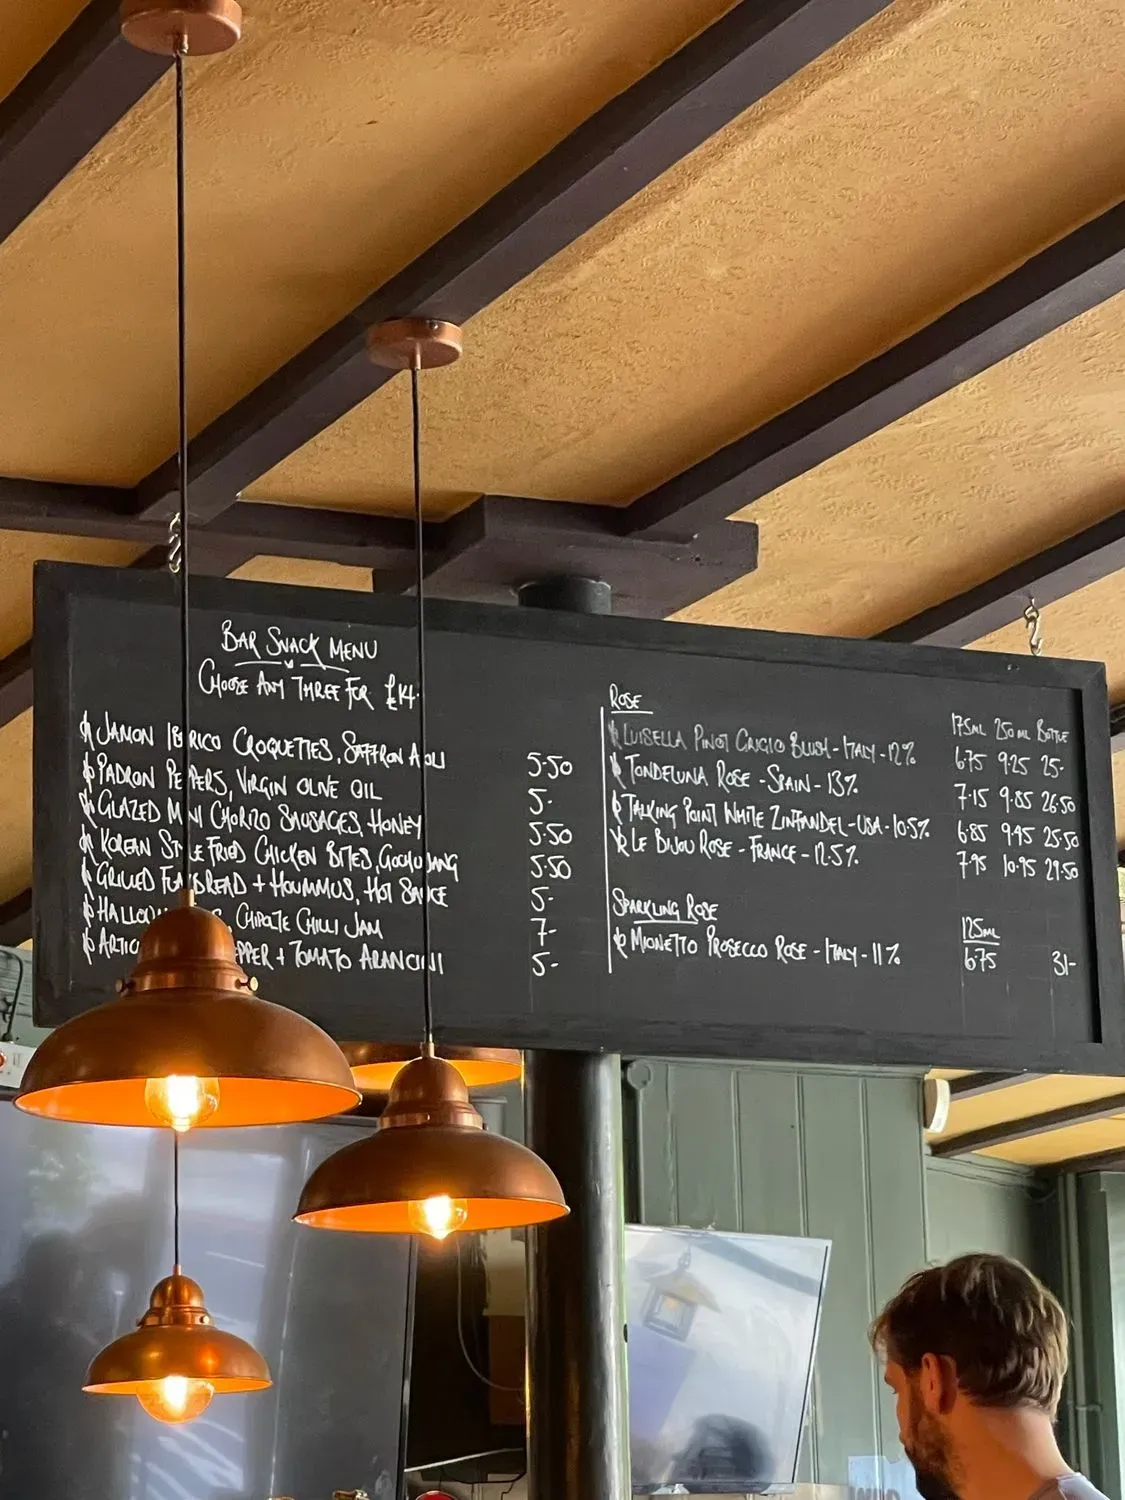 BAR SNACK MENU
CHOOSE ANY THREE FOR £14
JAMON IBERICO CROQUETTES, SAFFRON AIOLI 5.50
PADRON PEPPERS, VIRGIN OLIVE OIL 5-
GLAZED MINI CHORIZO SAUSAGES, HONEY 5.50
KOREAN STYLE FRIED CHICKEN BITES, GOCHUJANG 5.50
GRILLED FLATBREAD + HOUMMUS, HOT SAUCE 5-
CHIPOTLE CHILLI JAM 7-
+ TOMATO ARANCINI 5-
ROSE
175ML 250ML BOTTLE
LUISELLA PINOT GRIGIO BLUSH - ITALY - 12% 6.75 9.25 25-
TONDELUNA ROSE - SPAIN - 13% 7.15 9.85 26.50
TALKING POINT WHITE ZINFANDEL - USA - 10.5% 6.85 9.45 25.50
LE BIJOU ROSE - FRANCE - 12.5% 7.95 10.95 29.50
SPARKLING ROSE
125ML
MIONETTO PROSECCO ROSE - ITALY - 11% 6.75 31-